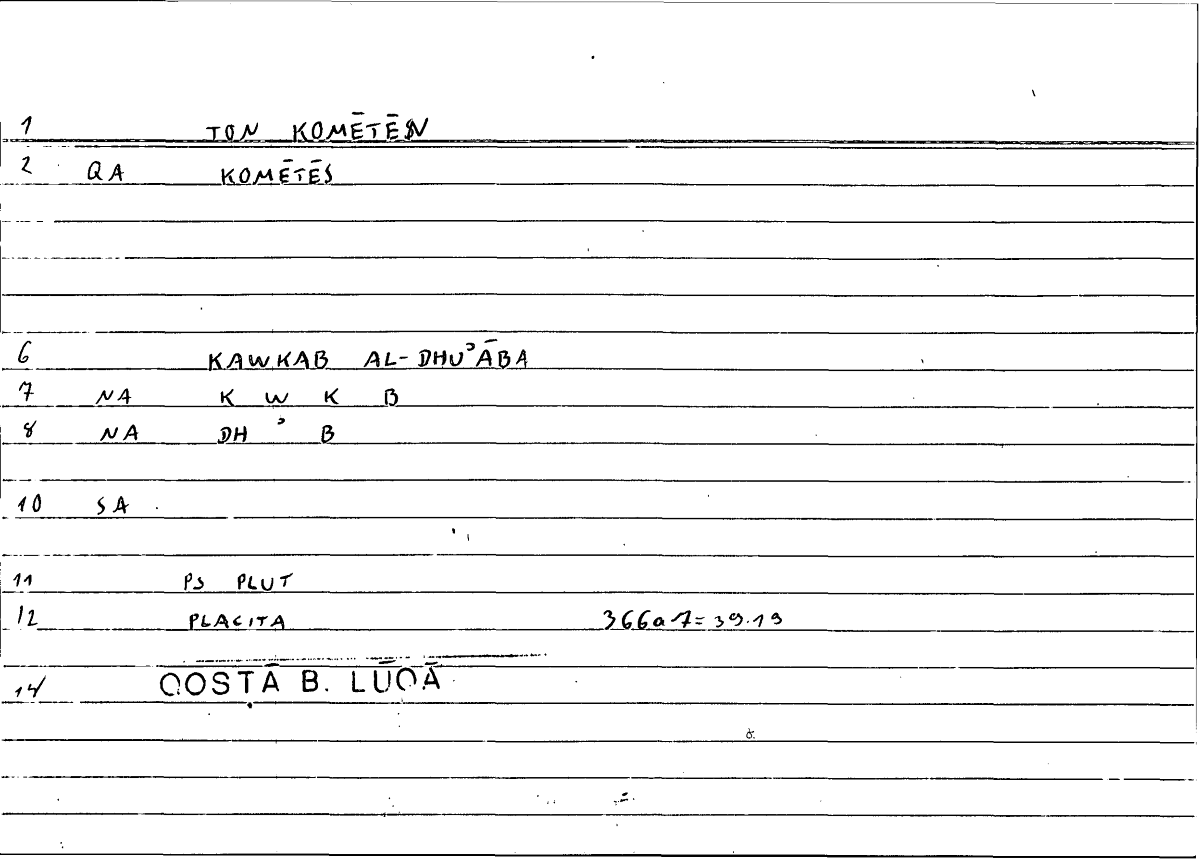 1 TON KOMĒTĒN
2 QA KOMĒTĒS
6 KAWKAB AL-DHUʾĀBA
7 NA K W K B
8 NA DH ʾ B
10 SA
11 PS PLUT
12 PLACITA 366a7=39.19
14 QOSṬĀ B. LŪQĀ